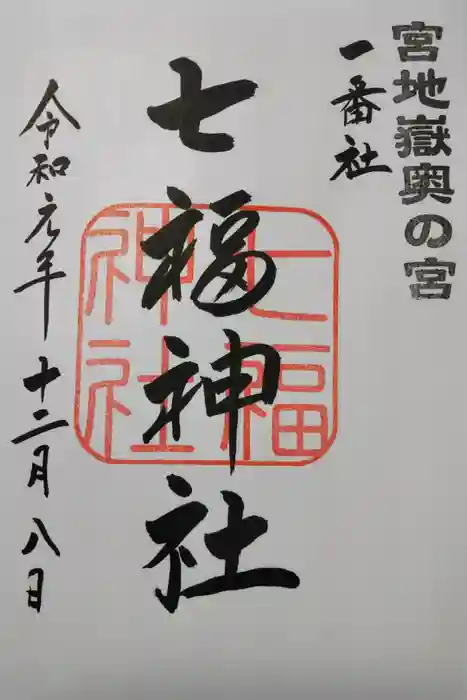 宮地嶽奥の宮
一番社
七福神社
七福神社
令和元年 十二月八日